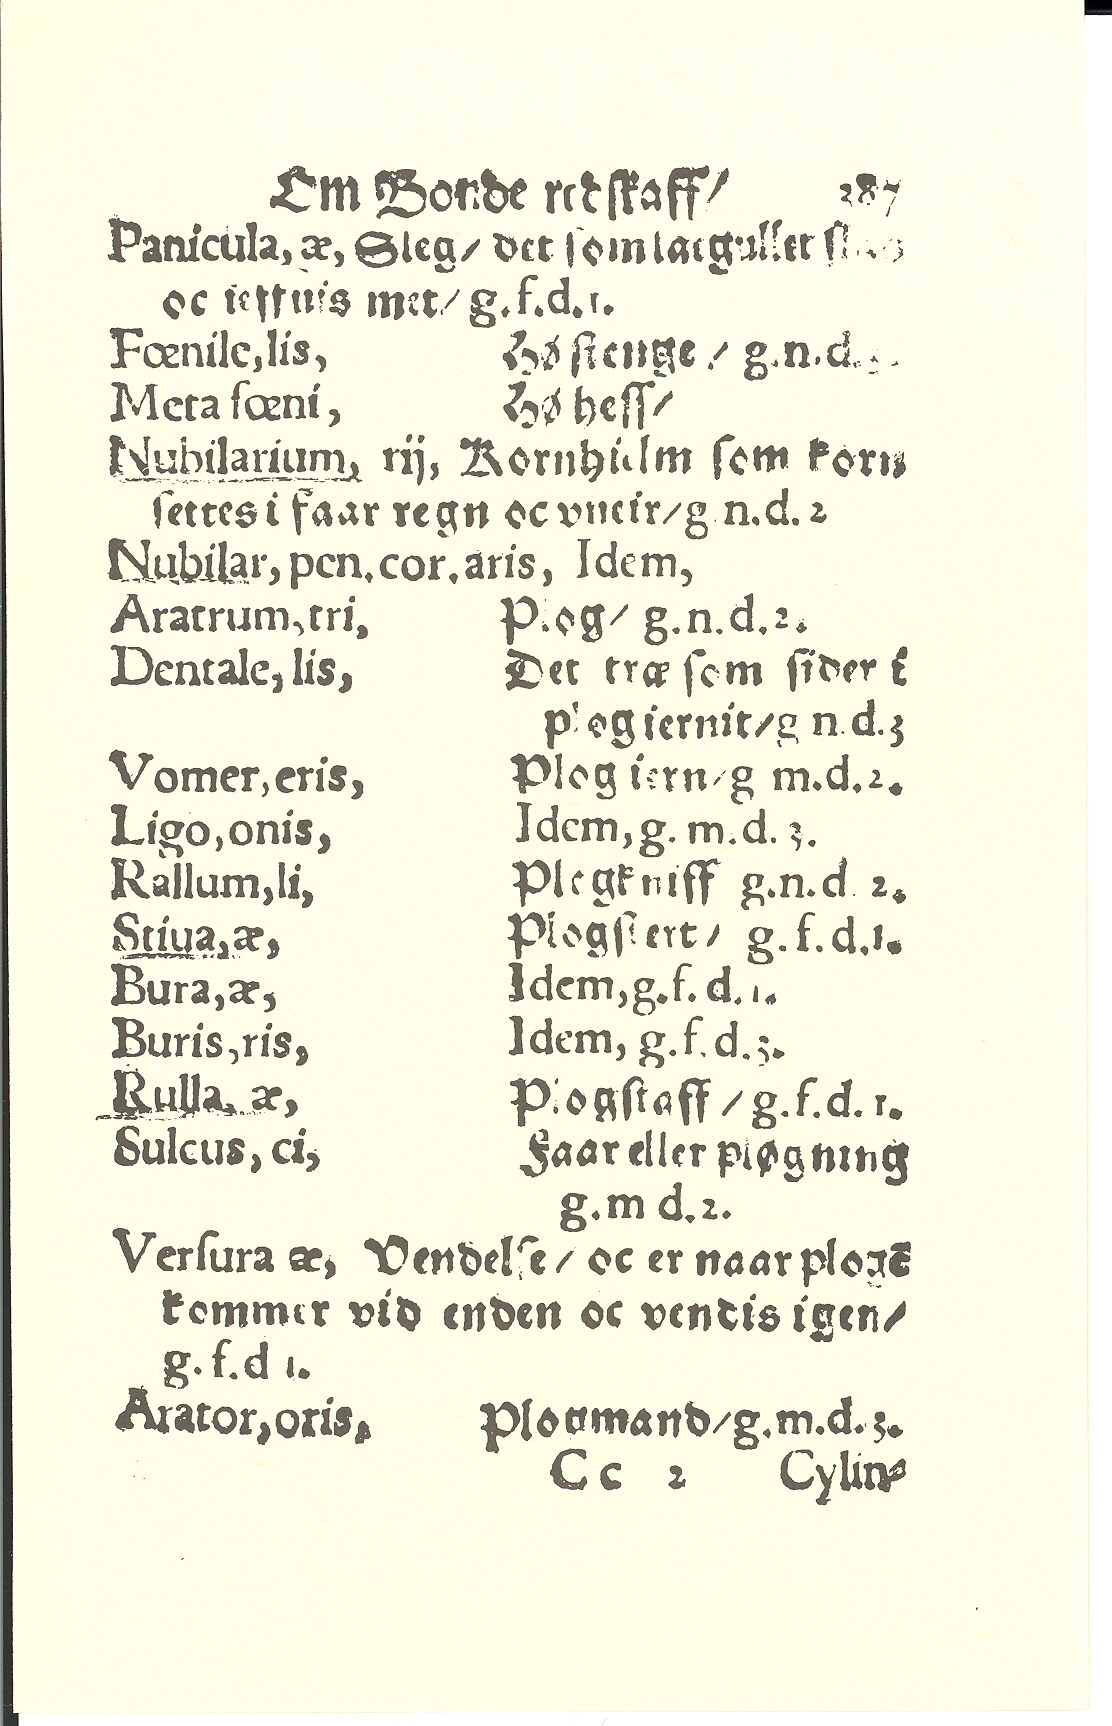 Om Bonde redskaff/ 287
Panicula, æ, Sleg/ det som laegullet
oc met/ g.f.d.1.
Fœnile, lis, Hø stenge / g.n.d.3.
Meta fœni, Hø hess/
Nubilarium, rij, Kornhielm som korn
settes i faar regn oc vneir/ g.n.d.2
Nubilar, pen.cor.aris, Idem,
Aratrum, tri, Plog/ g.n.d.2.
Dentale, lis, Det træ som sider i
plog iernit/ g n.d.3
Vomer, eris, Plog iern/ g m.d.2.
Ligo, onis, Idem, g. m.d.3.
Rallum, li, Plogkniff g.n.d.2.
Stiua, æ, Plogstert/ g.f.d.1.
Bura, æ, Idem, g.f.d.1.
Buris, ris, Idem, g.f.d.3.
Rulla, æ, Plogstaff / g.f.d.1.
Sulcus, ci, Faar eller pløgning
g.m d.2.
Versura æ, Vendelse/ oc er naar plogē
kommer vid enden oc vendis igen/
g.f.d 1.
Arator, oris, Plogmand/ g.m.d.3.
Cc 2 Cylin⸗